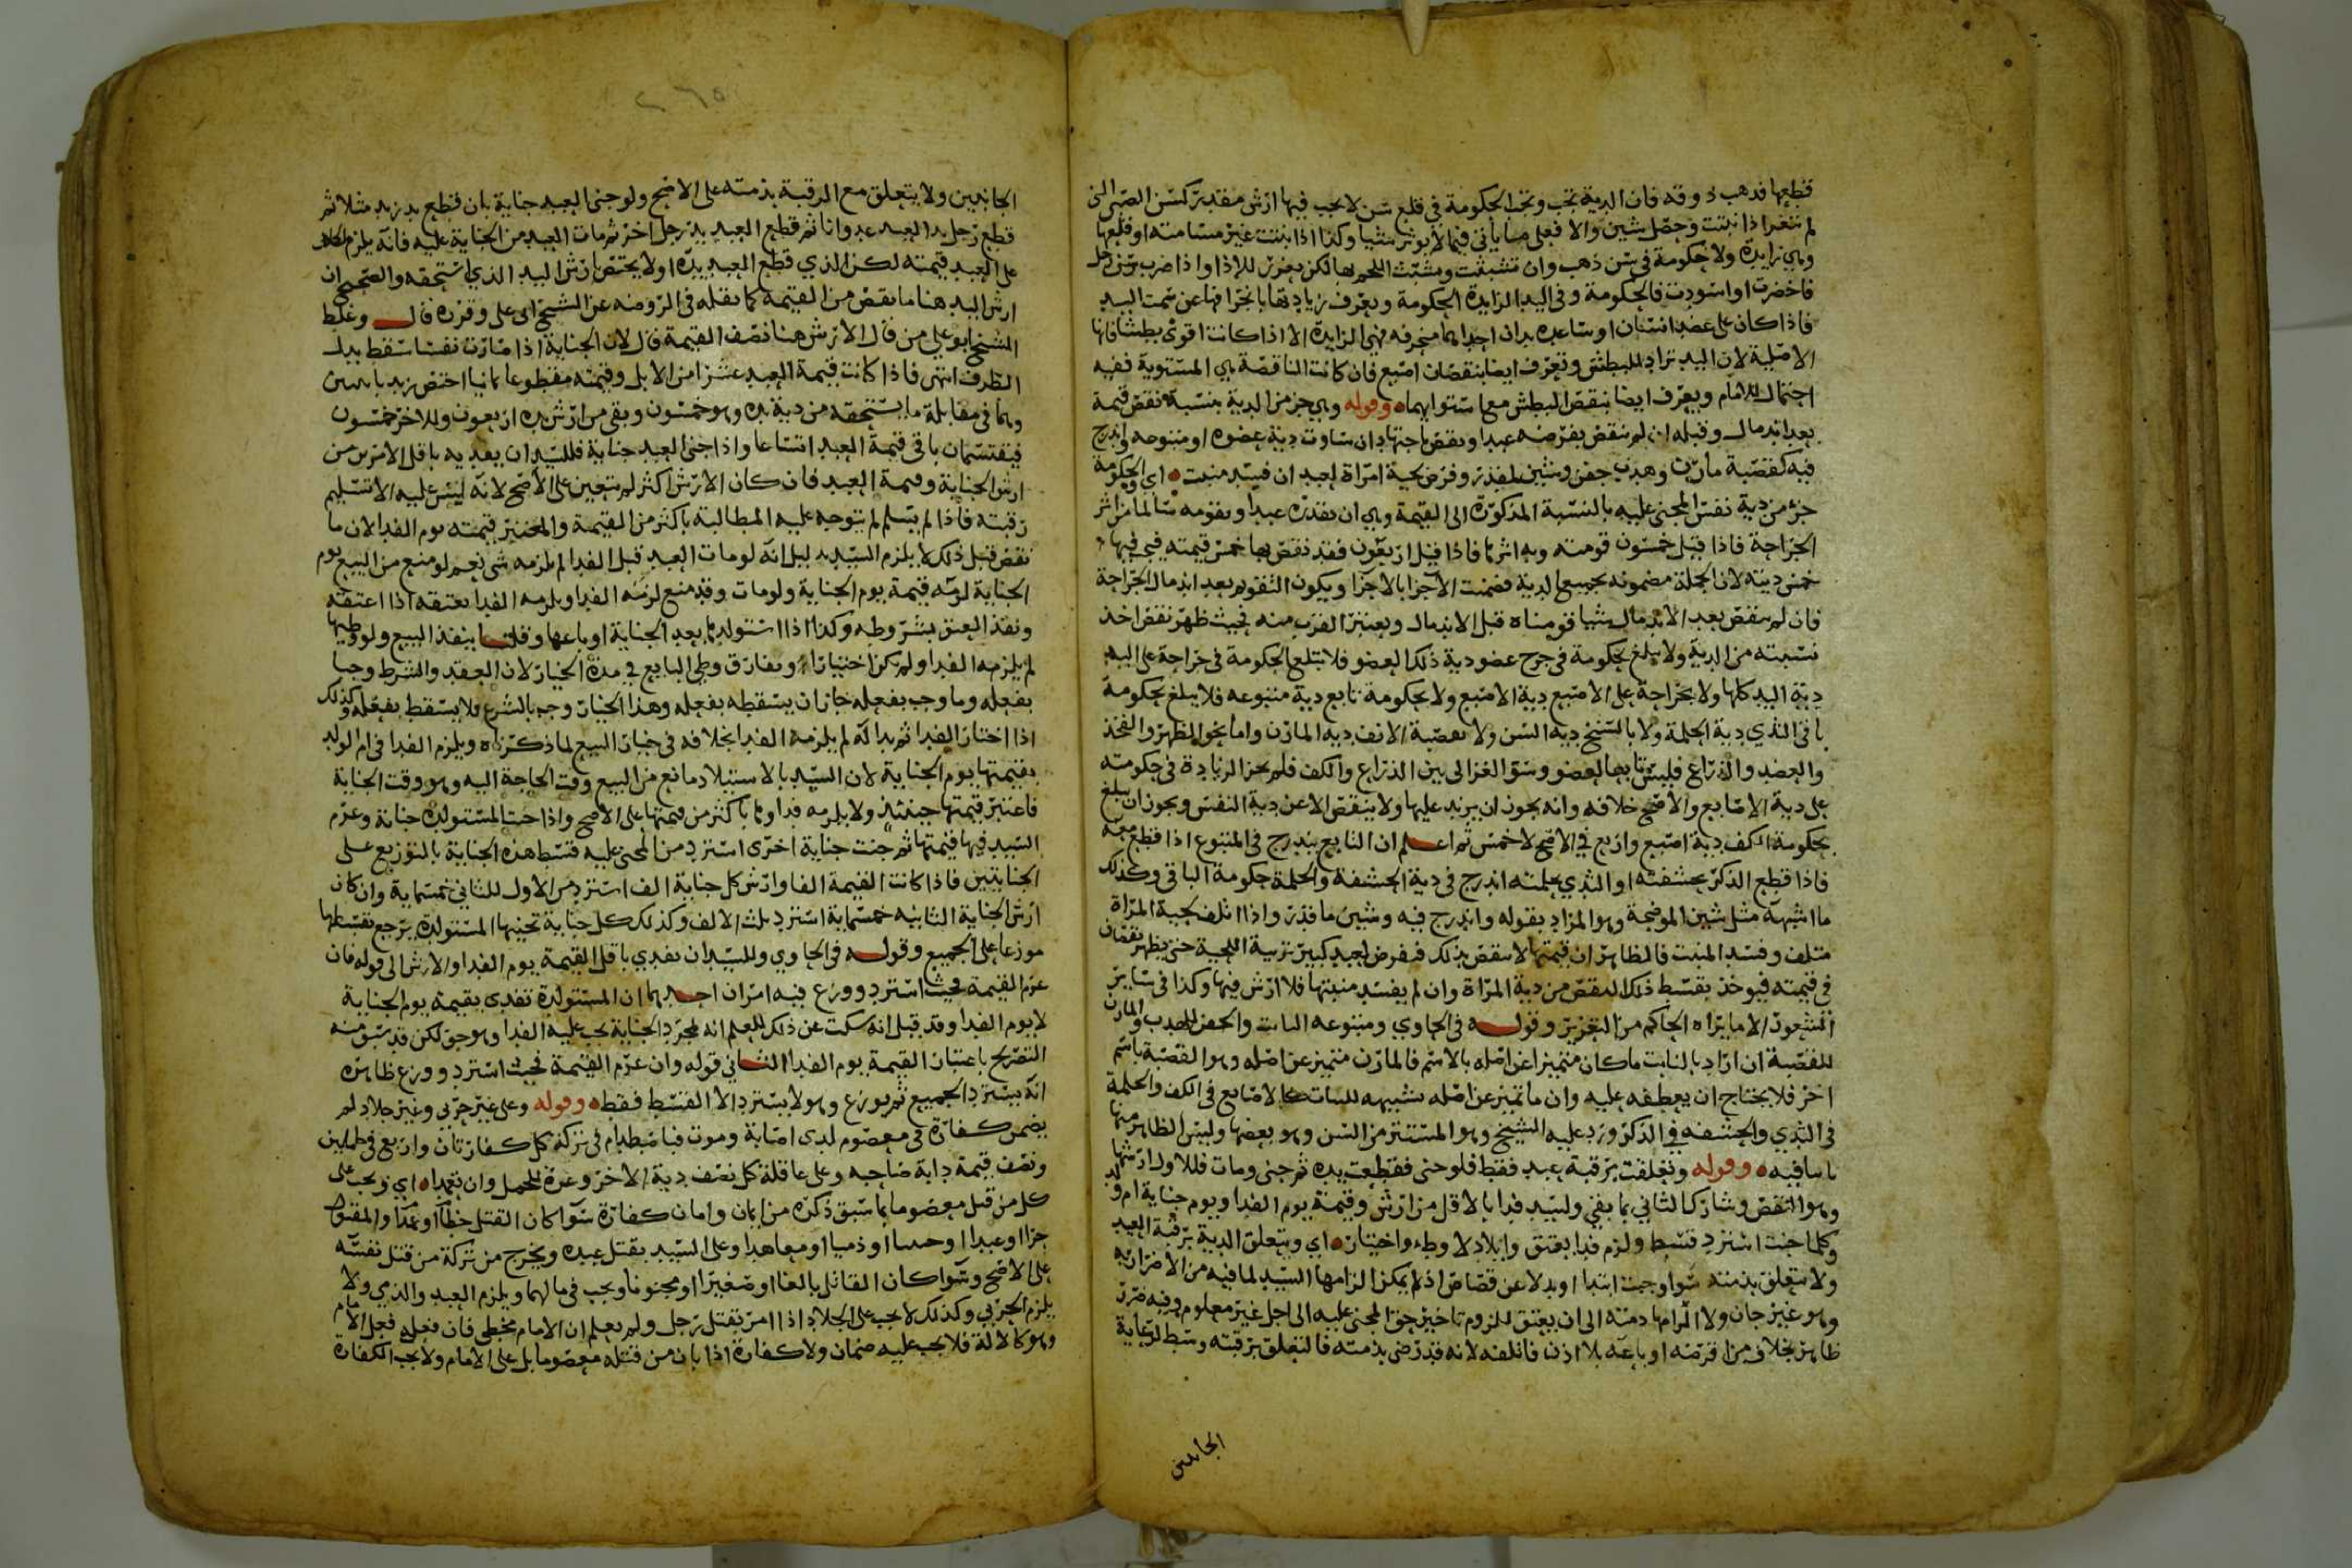 قطعها فذهب ذوقه فان الدية تجب وتجب الحكومة في قلع سن لا يجب فيها ارش مقدر كسن الصبي التي
لم تثغر اذا نبتت وحصل شين والا فعلى ما يأتي فيما لا يوثر شيا وكذا اذا نبتت غير مسامتة او قلعها
وهي زايدة ولا حكومة في سن ذهب وان تشبثت ونبت اللحم بها لكن يعزر للإذا واذا ضرب سن رجل
فاخضرت او اسودت فالحكومة وفي اليد الزايدة الحكومة وتعرف زيادتها بانحرافها عن سمت اليد
فاذا كان على عضد انسان او ساعده يدان احداهما منحرفه فهي الزايدة الا اذا كانت اقوى بطشا فانها
الاصلية لان اليد تراد للبطش وتعرف ايضا بنقصان اصبع فان كانت الناقصة هي المستوية ففيه
احتمال للامام ويعرف ايضا بنقص البطش مع استوايهما وقوله وهي جز من الدية بنسبة نقص قيمة
بعد اندمال وقبله ان لم ينقص بفرضه عبدا ونقص باجتهاد ان ساوت دية عضوه او متبوعه واندرج
فيه كقصبة مارن وهدب جفن وشين مقدر وفرض لحية امراة لعبد ان فسد منبت اي والحكومة
جزء من دية نفس المجني عليه بالنسبة المذكورة الى القيمة وهي ان نقدره عبدا ونقومه سالما من اثر
الجراحة فاذا قيل خمسون قومته وبه اثرها فاذا قيل اربعون فقد نقص بها خمس قيمته فيجب فيها
خمس ديته لان الجملة مضمونه بجميع الدية فضمنت الاجزا بالاجزا ويكون التقويم بعد اندمال الجراحة
فان لم ينقص بعد الاندمال شيا قومناه قبل الاندمال ويعتبر القرب منه فحيث ظهر نقص اخذ
نسبته من الدية ولا يبلغ بحكومة في جرح عضو دية ذلك العضو فلا تبلغ الحكومة في جراحة على اليد
دية اليد كلها ولا بجراحة على الاصبع دية الاصبع ولا بحكومة تابع دية متبوعه فلا يبلغ بحكومة
باقي الثدي دية الحلمة ولا بالسنخ دية السن ولا بقصبة الانف دية المارن واما نحو الظهر والفخذ
والعضد والذراع فليس تابعا لعضو وسوى الغزالي بين الذراع والكف فلم يجز الزيادة في حكومته
على دية الاصابع والاصح خلافه وانه يجوز ان يزيد عليها ولا ينقص الا عن دية النفس ويجوز ان يبلغ
بحكومة الكف دية اصبع واربع في الاصح لا خمس ثم اعلم ان التابع يندرج في المتبوع اذا قطع معه
فاذا قطع الذكر بحشفته او الثدي بحلمته اندرج في دية الحشفة والحلمة حكومة الباقي وكذلك
ما اشبهه مثل شين الموضحة وهو المراد بقوله واندرج فيه وشين ما قدر واذا اتلف لحية المراة
متلف وفسد المنبت فالظاهر ان قيمتها لا تنقص بذلك فنفرض لعبد كبير تزينه اللحية حتى يظهر نقصان
في قيمته فيوخذ بقسط ذلك النقص من دية المراة وان لم يفسد منبتها فلا ارش فيها وكذا في ساير
الشعور الا ما يراه الحاكم من التعزير وقوله في الحاوي ومتبوعه النابت والجفن للهدب والمارن
للقصبة ان اراد بالنابت ما كان متميزا عن اصله بالاسم فالمارن متميز عن اصله وهو القصبة باسم
اخر فلا يحتاج ان يعطفه عليه وان ما تميز عن اصله شبيهه للنبات كالاصابع في الكف والحلمة
في الثدي والحشفه في الذكر ورد عليه السنخ وهو المستتر من السن وهو بعضها وليس الظاهر منها
نابتا فيه وقوله وتعلقت برقبة عبد فقط فلو جنى فقطعت يده ثم جنى ومات فللاول ارشها
وهو النقص وشارك الثاني بما بقي ولسيد فدا بالاقل من ارش وقيمة يوم الفدا ويوم جناية ام ولد
وكلما جنت استرد قسط ولزم فدا بعتق وايلاد لا وطء واختيار اي وتتعلق الدية برقبة العبد
ولا تتعلق بذمته سوا وجبت ابتدا او بدلا عن قصاص اذ لا يمكن الزامها السيد لما فيه من الاضرار به
وهو غير جان ولا الزامها ذمته الى ان يعتق للزوم تاخير حق المجني عليه الى اجل غير معلوم وفيه ضرر
ظاهر بخلاف من اقرضه او باعه بلا اذن فاتلفه لانه قد رضي بذمته فالتعلق برقبته وسط لرعاية
الجانبين
٢٦٥
الجانبين ولا يتعلق مع الرقبة بذمته على الاصح ولو جنى العبد جناية بان قطع يد زيد مثلا ثم
قطع رجل يد العبد عدوانا ثم قطع العبد يد رجل اخر ثم مات العبد من الجناية عليه فانه يلزم الجاني
على العبد قيمته لكن الذي قطع العبد يده اولا يختص بارش اليد الذي استحقه والصحيح ان
ارش اليد هنا ما نقص من القيمة كما نقله في الروضه عن الشيخ ابي علي وقرره قال وغلط
الشيخ ابو علي من قال الارش هنا نصف القيمة قال لان الجناية اذا صارت نفسا سقط بدل
الطرف انتهى فاذا كانت قيمة العبد عشرا من الابل وقيمته مقطوعا ثمانيا اختص زيد باثنين
وهما في مقابلة ما يستحقه من دية يده وهو خمسون وبقي من ارش يده اربعون وللاخر خمسون
فيقتسمان باقي قيمة العبد اتساعا واذا جنى العبد جناية فللسيد ان يفديه باقل الامرين من
ارش الجناية وقيمة العبد فان كان الارش اكثر لم يتعين على الاصح لانه ليس عليه الا تسليم
رقبته فاذا لم يسلم لم يتوجه عليه المطالبة باكثر من القيمة والمعتبر قيمته يوم الفدا لان ما
نقص قبل ذلك لا يلزم السيد بدليل انه لو مات العبد قبل الفدا لم يلزمه شي نعم لو منع من البيع يوم
الجناية لزمه قيمة يوم الجناية ولو مات وقد منع لزمه الفدا ويلزمه الفدا بعتقه اذا اعتقه
ونفذ العتق بشروطه وكذا اذا استولدها بعد الجناية او باعها وقلنا ينفذ البيع ولو وطيها
لم يلزمه الفدا ولم يكن اختيارا وتفارق وطي البايع في مدة الخيار لان العقد والشرط وجبا
بفعله وما وجب بفعله جاز ان يسقطه بفعله وهذا الخيار وجب بالشرع فلا يسقط بفعله وكذلك
اذا اختار الفدا ثم بدا له لم يلزمه الفدا بخلافه في خيار البيع لما ذكرناه ويلزم الفدا في ام الولد
بقيمتها يوم الجناية لان السيد بالاستيلاد مانع من البيع وقت الحاجة اليه وهو وقت الجناية
فاعتبر قيمتها حينئذ ولا يلزمه فداوها باكثر من قيمتها على الاصح واذا جنت المستولدة جناية وغرم
السيد فيها قيمتها ثم جنت جناية اخرى استرد من المجني عليه قسط هذه الجناية بالتوزيع على
الجنايتين فاذا كانت القيمة الفا وارش كل جناية الف استرد من الاول للثاني خمسماية وان كان
ارش الجناية الثانيه خمسماية استرد ثلث الالف وكذلك كل جناية تجنيها المستولدة يرجع بقسطها
موزعا على الجميع وقوله في الحاوي وللسيد ان يفدي باقل القيمة يوم الفدا والارش الى قوله فان
غرم القيمة فجنت استرد ووزع فيه امران احدهما ان المستولدة تفدى بقيمة يوم الجناية
لا يوم الفدا وقد قيل انه سكت عن ذلك للعلم انه بمجرد الجناية يجب عليه الفدا وهو حق لكن قد سبق منه
التصريح باعتبار القيمة يوم الفدا الثاني قوله وان غرم القيمة فجنت استرد ووزع ظاهره
انه يسترد الجميع ثم يوزع وهو لا يسترد الا القسط فقط وقوله وعلى غير حربي وغير جلاد لم
يضمن كفارة في معصوم لدى اصابة وموت فباصطدام في تركة كل كفارتان واربع في حاملين
ونصف قيمة دابة صاحبه وعلى عاقلة كل نصف دية الاخر وغرة للحمل وان تعمدا اي ويجب على
كل من قتل معصوما بما سبق ذكره من ايمان وامان كفارة سوا كان القتل خطأ او عمدا والمقتول
حرا او عبدا او جنينا او ذميا او معاهدا وعلى السيد بقتل عبده ويخرج من تركة من قتل نفسه
على الاصح وسوا كان القاتل بالغا او صغيرا او مجنونا ويجب في مالهما ويلزم العبد والذمي ولا
يلزم الحربي وكذلك لا يجب على الجلاد اذا امر بقتل رجل ولم يعلم ان الامام مخطي فان فعله فعل الامام
وهو كالالة فلا يجب عليه ضمان ولا كفارة اذا بان من قتله معصوما بل على الامام ولا يجب الكفارة